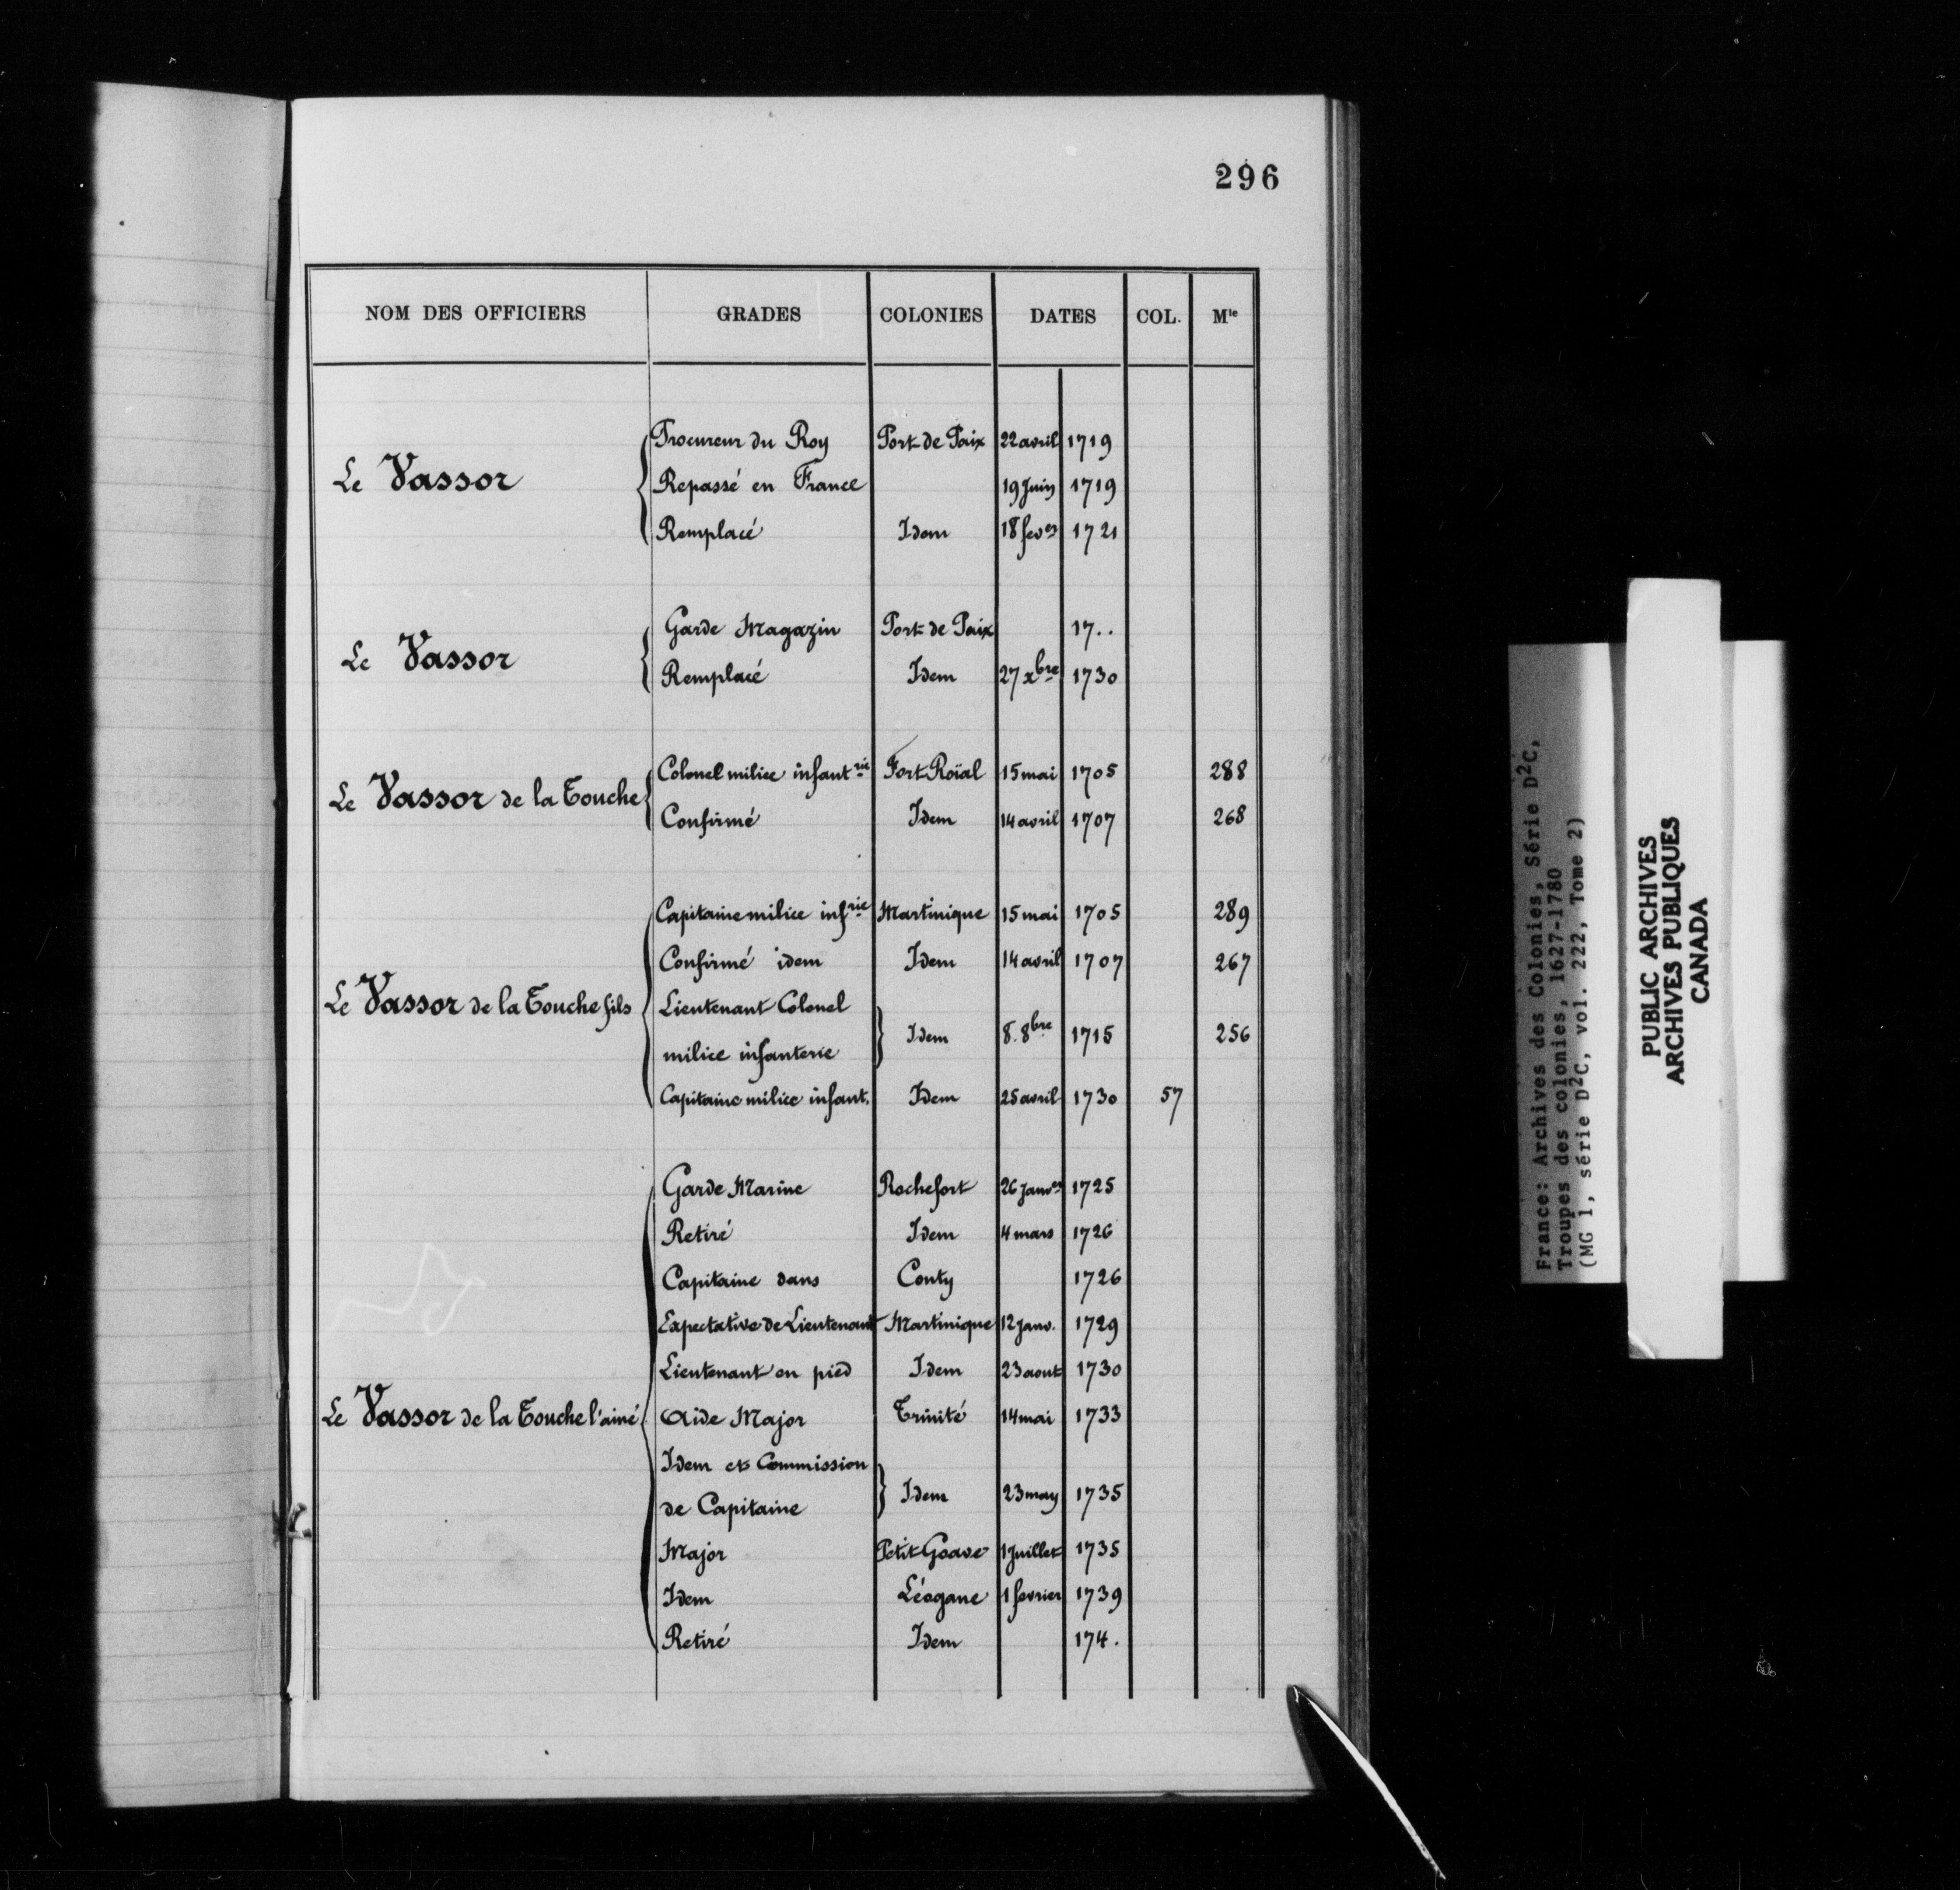 296
NOM DES OFFICIERS GRADES COLONIES DATES COL. Mle
Le Vassor
Procureur du Roy Port-de Paix 22 avril 1719
Repassé en France 19 Juin 1719
Remplacé Idem 18 fever 1721
Le Vassor
Garde Magazin Port-de Paix 17..
Remplacé Idem 27 xbre 1730
Le Vassor de la Touche
Colonel milice infantrie Fort-Roïal 15 mai 1705 288
Confirmé Idem 14 avril 1707 268
Le Vassor de la Touche fils
Capitaine milice infrie Martinique 15 mai 1705 289
Confirmé idem Idem 14 avril 1707 267
Lieutenant Colonel
milice infanterie Idem 8. 8bre 1715 256
Capitaine milice infant. Idem 25 avril 1730 57
Le Vassor de la Touche l'ainé
Garde Marine Rochefort 26 janver 1725
Retiré Idem 4 mars 1726
Capitaine dans Conty 1726
Expectative de Lieutenant Martinique 12 janv. 1729
Lieutenant en pied Idem 23 aout 1730
Aide Major Trinité 14 mai 1733
Idem et Commission
de Capitaine Idem 23 may 1735
Major Petit-Goave 1 Juillet 1735
Idem Léogane 1 fevrier 1739
Retiré Idem 174.
France: Archives des Colonies, Série D2C,
Troupes des colonies, 1627-1780
(MG 1, série D2C, vol. 222, Tome 2)
PUBLIC ARCHIVES
ARCHIVES PUBLIQUES
CANADA